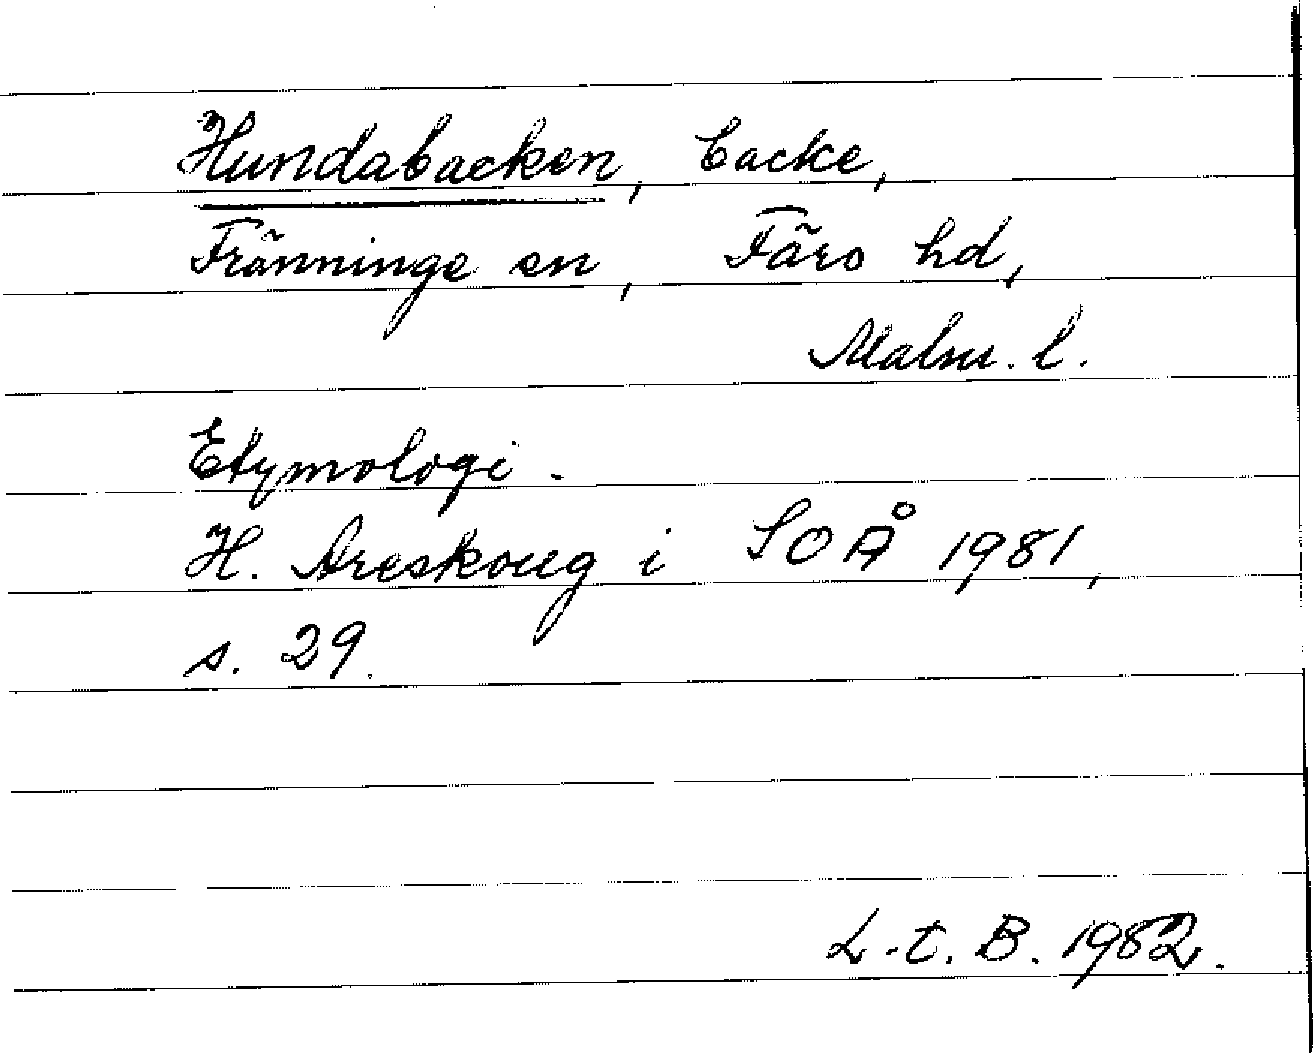 Hundabacken, backe,
Fränninge sn, Färs hd,
Malm. l.
Etymologi.
H. Areskoug i SOÅ 1981,
s. 29.
L-t. B. 1982.